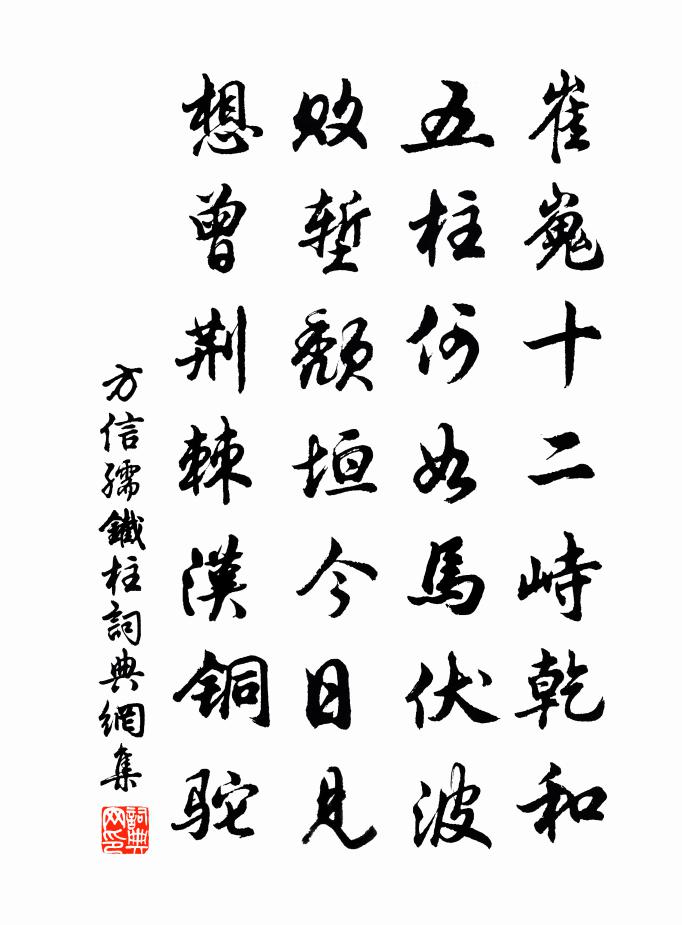 崔嵬十二峙乾和
五柱何如馬伏波
败塹颓垣今日見
想曾荆棘漢铜驼
方信孺鐵柱詞典網集
詞典网印